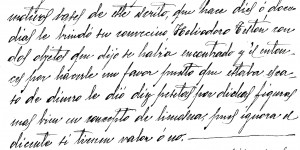 motivos bases de este escrito, que hace dias ó doce
dias le brindó su convecino Heliodoro Eston con
dos objetos que dijo se habia encontrado y él enton
ces por hacerle un favor puesto que estaba esca
so de dinero le dió diez pesetas por dichas figuras
mas bien en concepto de limosna, pues ignora el
dicente si tienen valor ó no.